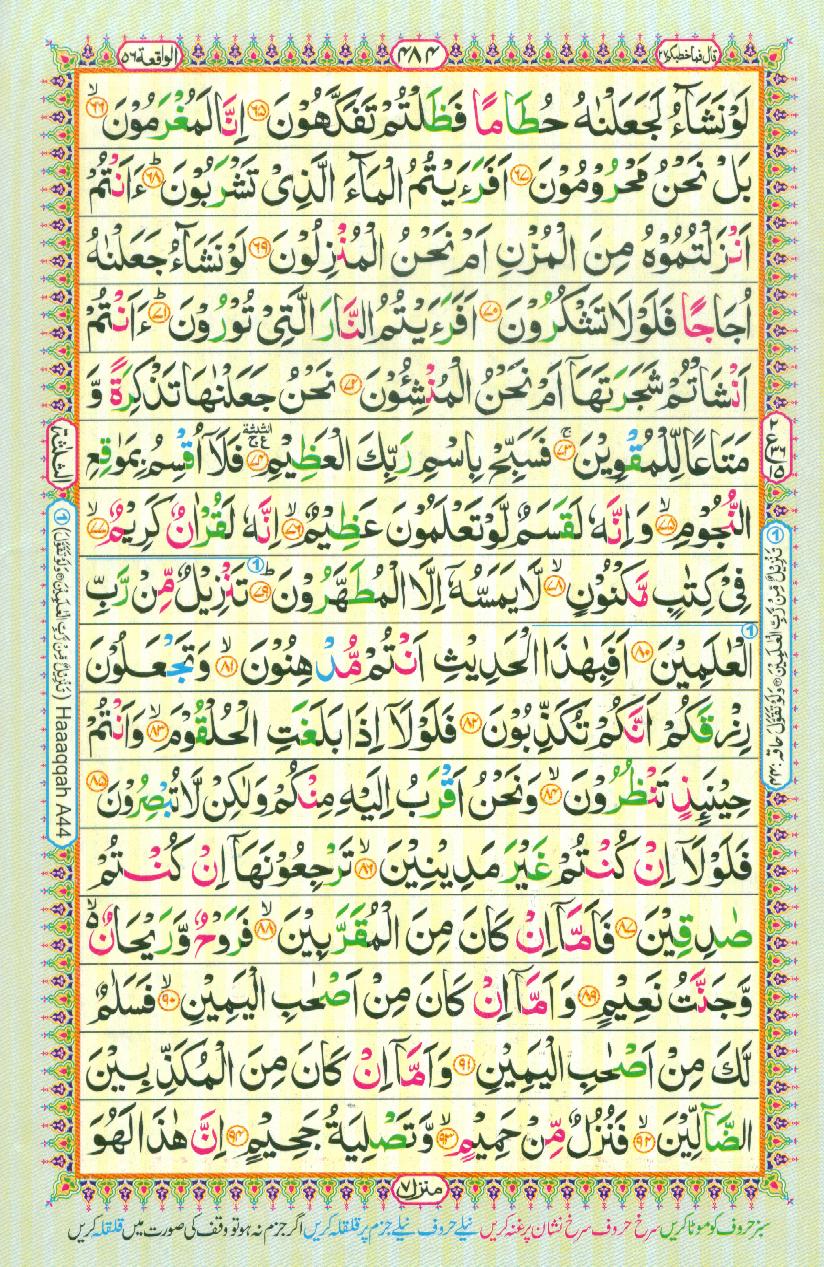 قال فما خطبكم ٢٧
٤٨٤
الواقعة ٥٦
لَوْ نَشَآءُ لَجَعَلْنٰهُ حُطَامًا فَظَلْتُمْ تَفَكَّهُوْنَ ﴿۶۵﴾ اِنَّا لَمُغْرَمُوْنَ ﴿۶۶﴾ۙ
بَلْ نَحْنُ مَحْرُوْمُوْنَ ﴿۶۷﴾ اَفَرَءَيْتُمُ الْمَآءَ الَّذِىْ تَشْرَبُوْنَ ﴿۶۸﴾ؕ ءَاَنْتُمْ
اَنْزَلْتُمُوْهُ مِنَ الْمُزْنِ اَمْ نَحْنُ الْمُنْزِلُوْنَ ﴿۶۹﴾ لَوْ نَشَآءُ جَعَلْنٰهُ
اُجَاجًا فَلَوْلَا تَشْكُرُوْنَ ﴿۷۰﴾ اَفَرَءَيْتُمُ النَّارَ الَّتِىْ تُوْرُوْنَ ﴿۷۱﴾ؕ ءَاَنْتُمْ
اَنْشَاْتُمْ شَجَرَتَهَآ اَمْ نَحْنُ الْمُنْشِـُٔوْنَ ﴿۷۲﴾ نَحْنُ جَعَلْنٰهَا تَذْكِرَةً وَّ
مَتَاعًا لِّلْمُقْوِيْنَ ﴿۷۳﴾ۚ فَسَبِّحْ بِاسْمِ رَبِّكَ الْعَظِيْمِ ﴿۷۴﴾ فَلَآ اُقْسِمُ بِمَوٰقِعِ
النُّجُوْمِ ﴿۷۵﴾ۙ وَاِنَّهٗ لَقَسَمٌ لَّوْ تَعْلَمُوْنَ عَظِيْمٌ ﴿۷۶﴾ۙ اِنَّهٗ لَقُرْاٰنٌ كَرِيْمٌ ﴿۷۷﴾ۙ
فِىْ كِتٰبٍ مَّكْنُوْنٍ ﴿۷۸﴾ۙ لَّا يَمَسُّهٗٓ اِلَّا الْمُطَهَّرُوْنَ ﴿۷۹﴾ؕ تَنْزِيْلٌ مِّنْ رَّبِّ
الْعٰلَمِيْنَ ﴿۸۰﴾ اَفَبِهٰذَا الْحَدِيْثِ اَنْتُمْ مُّدْهِنُوْنَ ﴿۸۱﴾ۙ وَتَجْعَلُوْنَ
رِزْقَكُمْ اَنَّكُمْ تُكَذِّبُوْنَ ﴿۸۲﴾ فَلَوْلَآ اِذَا بَلَغَتِ الْحُلْقُوْمَ ﴿۸۳﴾ۙ وَاَنْتُمْ
حِيْنَئِذٍ تَنْظُرُوْنَ ﴿۸۴﴾ۙ وَنَحْنُ اَقْرَبُ اِلَيْهِ مِنْكُمْ وَلٰكِنْ لَّا تُبْصِرُوْنَ ﴿۸۵﴾
فَلَوْلَآ اِنْ كُنْتُمْ غَيْرَ مَدِيْنِيْنَ ﴿۸۶﴾ۙ تَرْجِعُوْنَهَآ اِنْ كُنْتُمْ
صٰدِقِيْنَ ﴿۸۷﴾ فَاَمَّآ اِنْ كَانَ مِنَ الْمُقَرَّبِيْنَ ﴿۸۸﴾ۙ فَرَوْحٌ وَّرَيْحَانٌ ۙ۬
وَّجَنَّتُ نَعِيْمٍ ﴿۸۹﴾ وَاَمَّآ اِنْ كَانَ مِنْ اَصْحٰبِ الْيَمِيْنِ ﴿۹۰﴾ۙ فَسَلٰمٌ
لَّكَ مِنْ اَصْحٰبِ الْيَمِيْنِ ﴿۹۱﴾ وَاَمَّآ اِنْ كَانَ مِنَ الْمُكَذِّبِيْنَ
الضَّآلِّيْنَ ﴿۹۲﴾ۙ فَنُزُلٌ مِّنْ حَمِيْمٍ ﴿۹۳﴾ۙ وَّتَصْلِيَةُ جَحِيْمٍ ﴿۹۴﴾ اِنَّ هٰذَا لَهُوَ
الثلثة
① (تَنْزِيْلٌ مِّنْ رَّبِّ الْعٰلَمِيْنَ ۞ وَلَوْ تَقَوَّلَ) Haaaqqah A44
① تَنْزِيْلٌ مِّنْ رَّبِّ الْعٰلَمِيْنَ ۞ وَلَوْ تَقَوَّلَ حاقہ: ۴۴
منزل ٧
سبز حروف کو موٹا کریں سرخ حروف سرخ نشان پر غنہ کریں نیلے حروف نیلے جزم پر قلقلہ کریں اگر جزم نہ ہو تو وقف کی صورت میں قلقلہ کریں